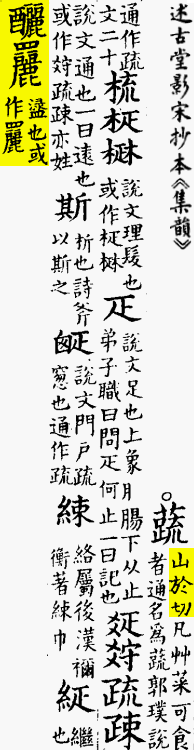 述古堂影宋抄本《集韻》
。蔬
山於切凡艸菜可食
者通名爲蔬郭璞說
通作疏
文二十
梳
說文理髮也
或作
疋
說文足也上象月腸下从止
弟子職曰問疋何止一曰記也
疏疎
說文通也一曰遠也
或作疏疎亦姓
斯
析也詩斧
以斯之
說文門戶疏
窻也通作疏
綀
絡屬後漢禰
衡著綀巾
繼也
釃
盪也或
作